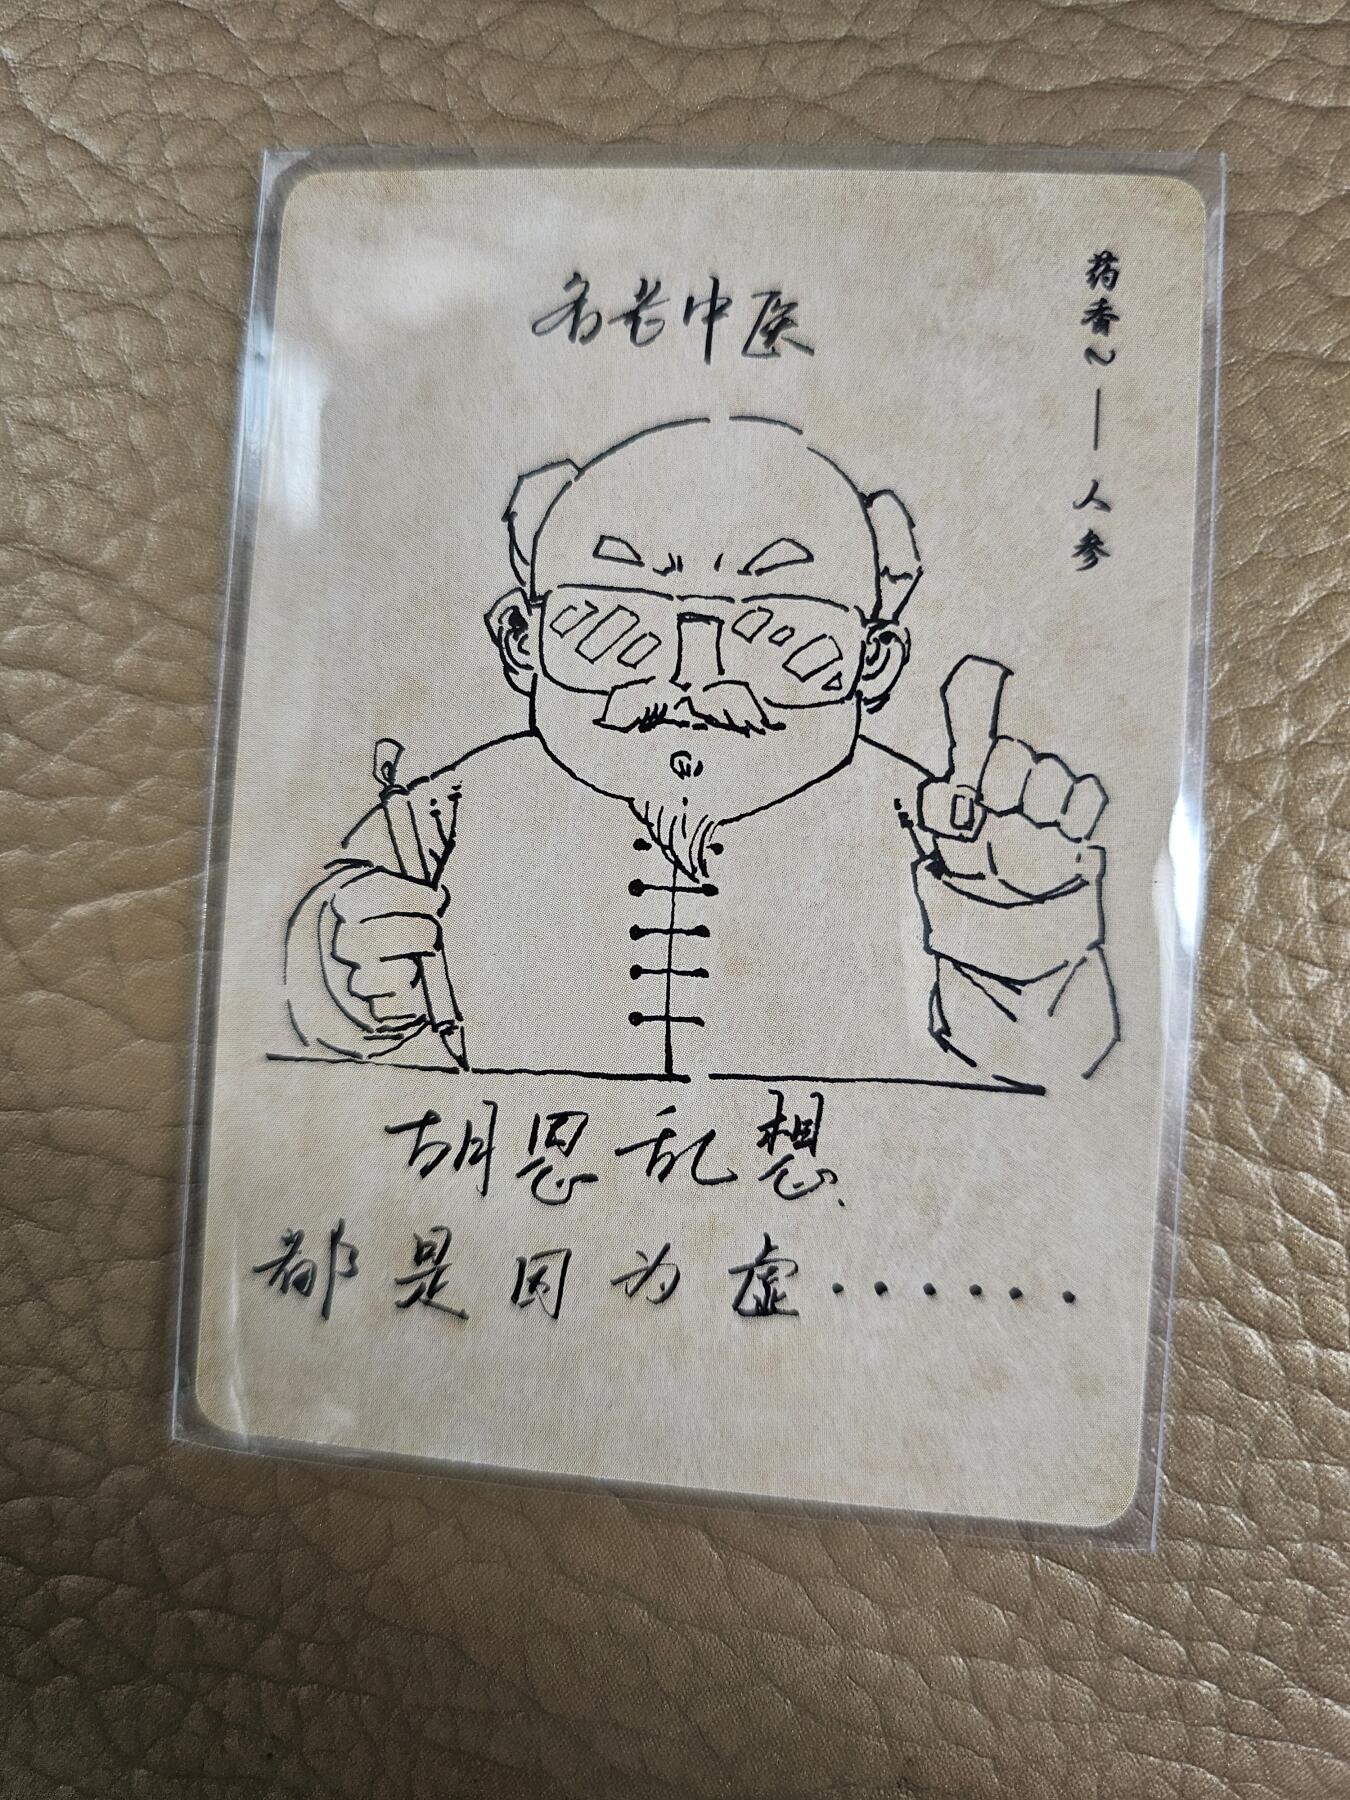 名老中医
药香~——人参
胡思乱想.
都是因为虚.......